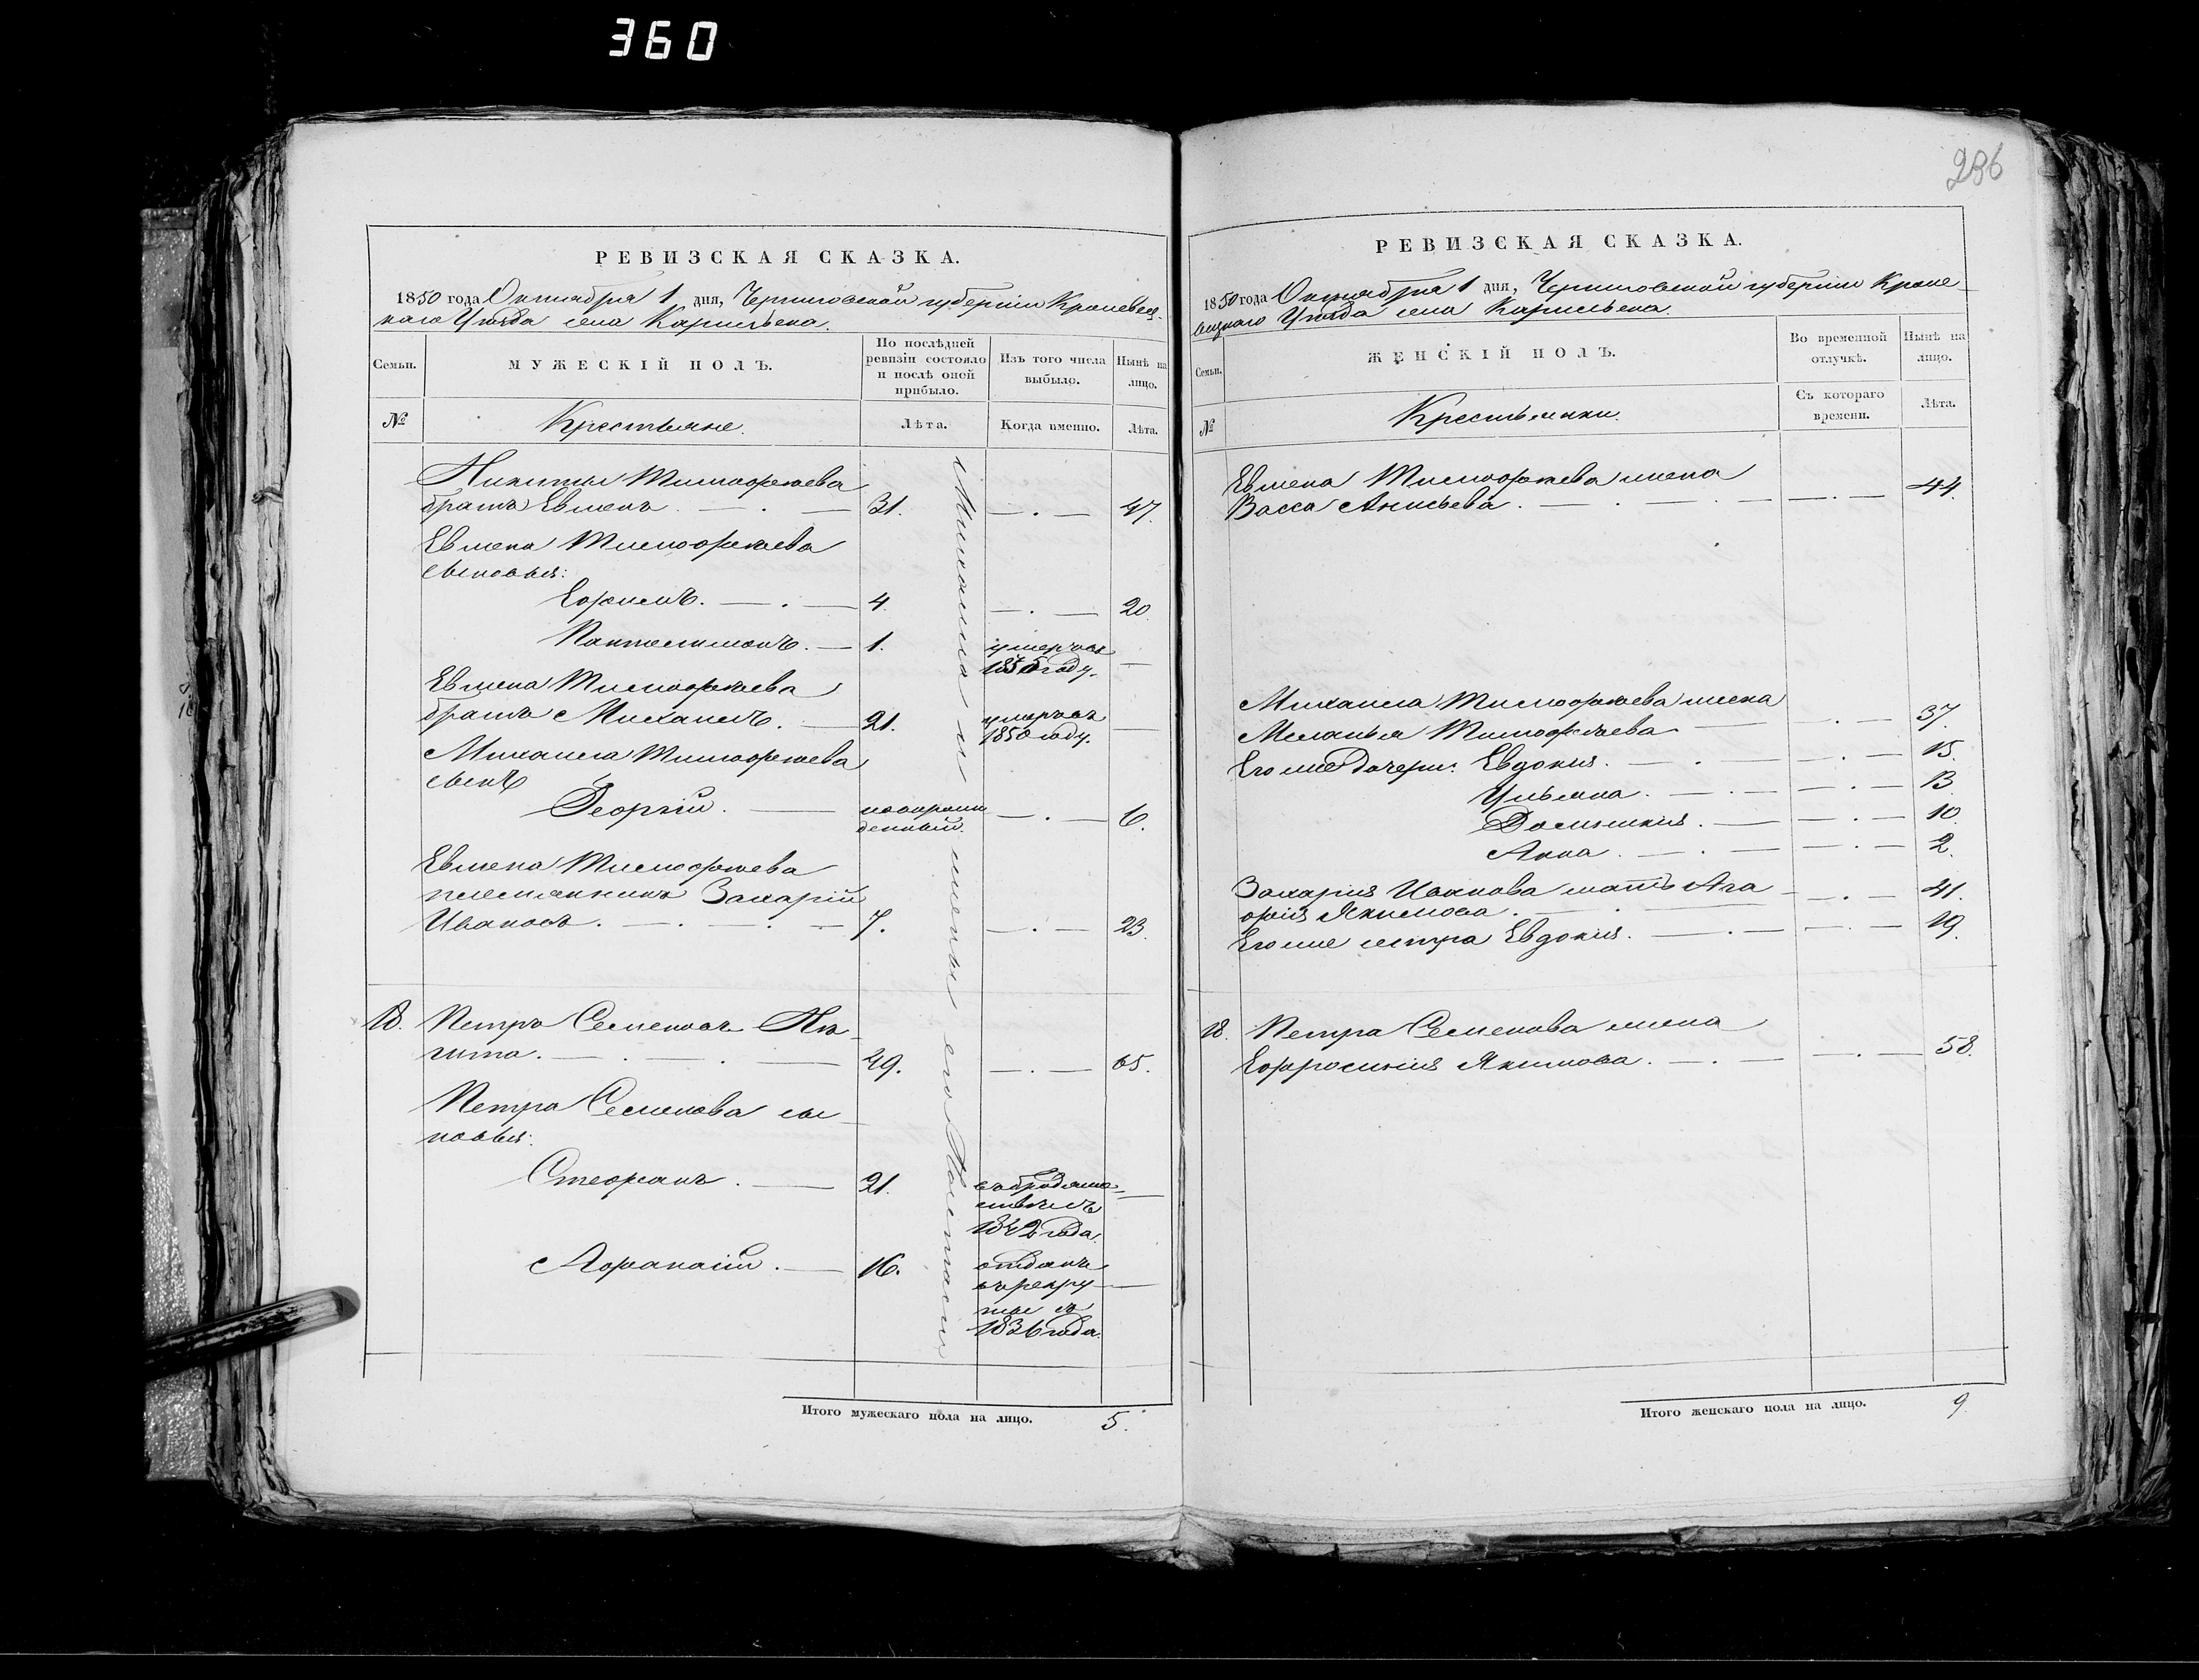 360
РЕВИЗСКАЯ СКАЗКА.
1850 года Октября 1 дня, Черниговской губерніи Кролевец-
каго Уѣзда села Карильска.
Семьи.
МУЖЕСКІЙ ПОЛЪ.
По послѣдней ревизіи состояло и послѣ оной прибыло.
Изъ того числа выбыло.
Нынѣ на лицо.
№
Крестьяне.
Лѣта.
Когда именно.
Лѣта.
Никиты Тимофѣева
братъ Евменъ. 31. 47.
Евмена Тимофѣева
сыновья:
Ефимъ. 4. 20
Пантелимонъ. 1. умеръ въ
году.
Евмена Тимофѣева
братъ Михаилъ. 21. умеръ въ
1850 году.
Михаила Тимофѣева
сынъ
Георгій. новорож
денный. 6.
Евмена Тимофѣева
племянникъ Захарій
Ивановъ. 7. 23.
18. Петръ Семеновъ
49. 65.
Петра Семенова сы-
новья:
Стефанъ. 21. въ бродяж-
1842 года.
Афанасій. 16. отданъ
въ рекру-
ты съ
1836 года.
Итого мужескаго пола на лицо. 5.
236
РЕВИЗСКАЯ СКАЗКА.
1850 года Октября 1 дня, Черниговской губерніи Кроле-
вецкаго Уѣзда села Карильска.
Семьи.
ЖЕНСКІЙ ПОЛЪ.
Во временной отлучкѣ.
Нынѣ на лицо.
№
Крестьянки.
Съ котораго времени.
Лѣта.
Евмена Тимофѣева жена
Васса Анисьева. 44.
Михаила Тимофѣева жена
Меланья Тимофѣева 37.
Его же дочери: Евдокія. 15.
Ульяна. 13
Домникія. 10.
Анна. 2.
Захарія Иванова мать Ага
фія Якимова. 41.
Его же сестра Евдокія. 19.
18. Петра Семенова жена
Ефросинія Якимова. 58.
Итого женскаго пола на лицо. 9.